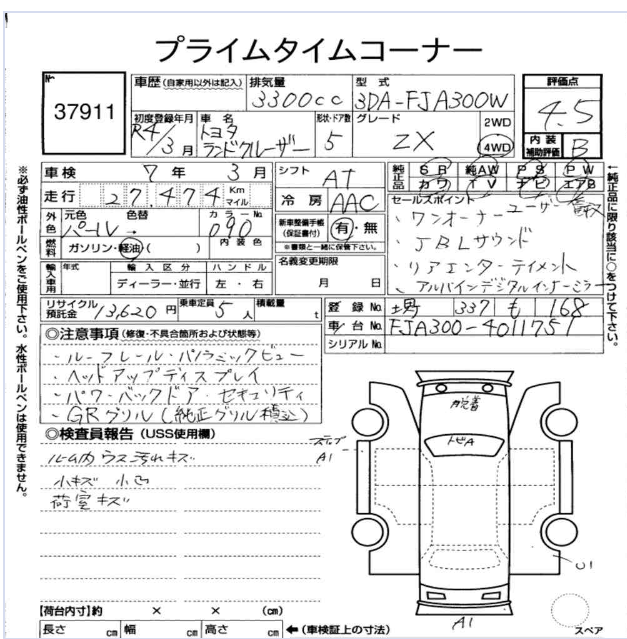 プライムタイムコーナー
No
37911
車歴(自家用以外は記入) 排気量 型式
3300cc 3DA-FJA300W
評価点
4.5
初度登録年月 車名 形状・ドア数 グレード
R4/3月 トヨタ ランドクルーザー 5 ZX
2WD
4WD
内装補助評価 B
車検 7年3月 シフト AT
純正品 SR 純AW PS PW
カワ TV ナビ エアB
走行 27,474 Km マイル 冷房 AAC
セールスポイント
外色 元色 色替 カラーNo.
パール→ 090
新車整備手帳(保証書付) 有・無
※書類と一緒に保管下さい。
・ワンオーナー ユーザー
・JBLサウンド
・リアエンターテイメント
・アルパインデジタルインナーミラー
燃料 ガソリン・軽油・( ) 内装色
名義変更期限
月 日
輸入車用 年式 輸入区分 ハンドル
ディーラー・並行 左・右
リサイクル預託金 13,620円 乗車定員 5人 積載量 t
登録No. 331 も 168
車台No. FJA300-4011751
シリアルNo.
◎注意事項(修復・不具合箇所および状態等)
・ルーフレール・パノラミックビュー
・ヘッドアップディスプレイ
・パワーバックドア・セキュリティ
・GRグリル(純正グリル積込)
◎検査員報告(USS使用欄)
ルーム内ウス汚れキズ
小キズ 小凹
荷室キズ
脱着
トビA
ステップ
A1
U1
A1
スペア
【荷台内寸】約 × × (cm)
長さ cm 幅 cm 高さ cm ←(車検証上の寸法)
※必ず油性ボールペンをご使用下さい。水性ボールペンは使用できません。
←純正品に限り該当に○をつけて下さい。